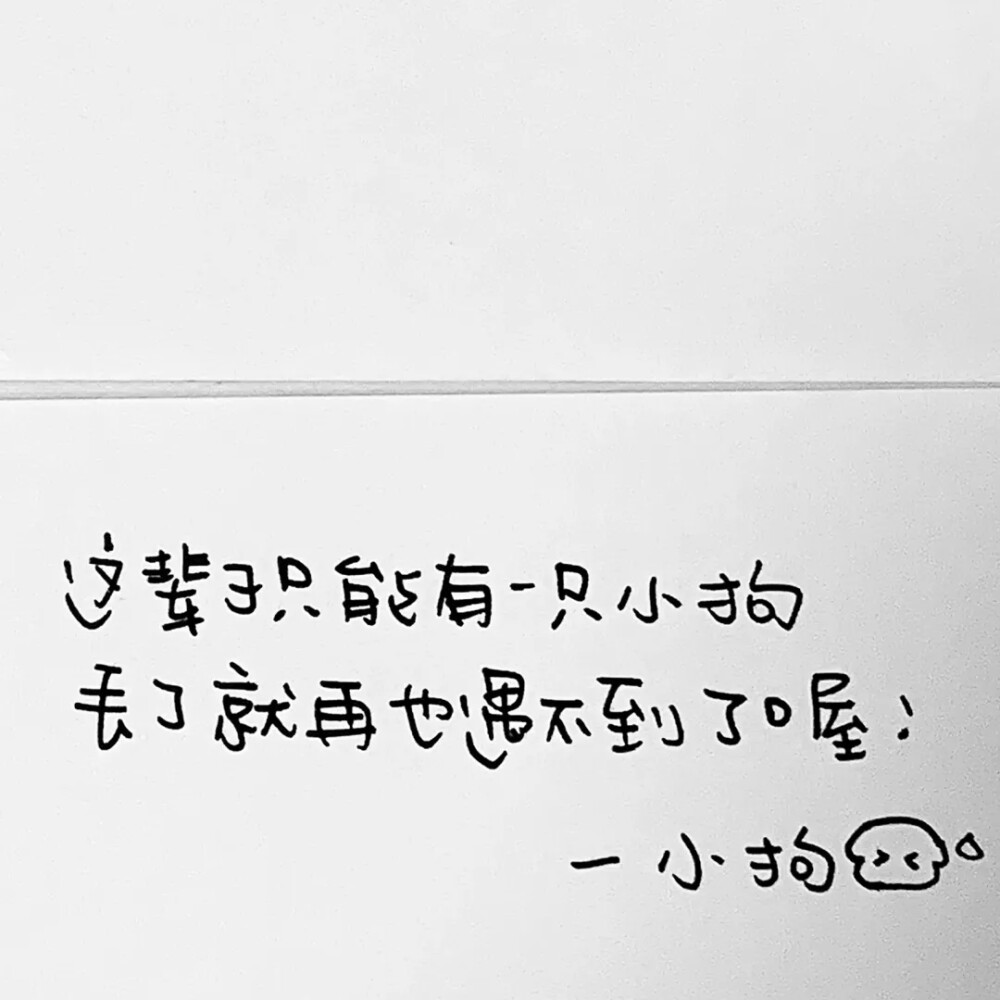 这辈子只能有一只小狗
丢了就再也遇不到了喔!
一小狗